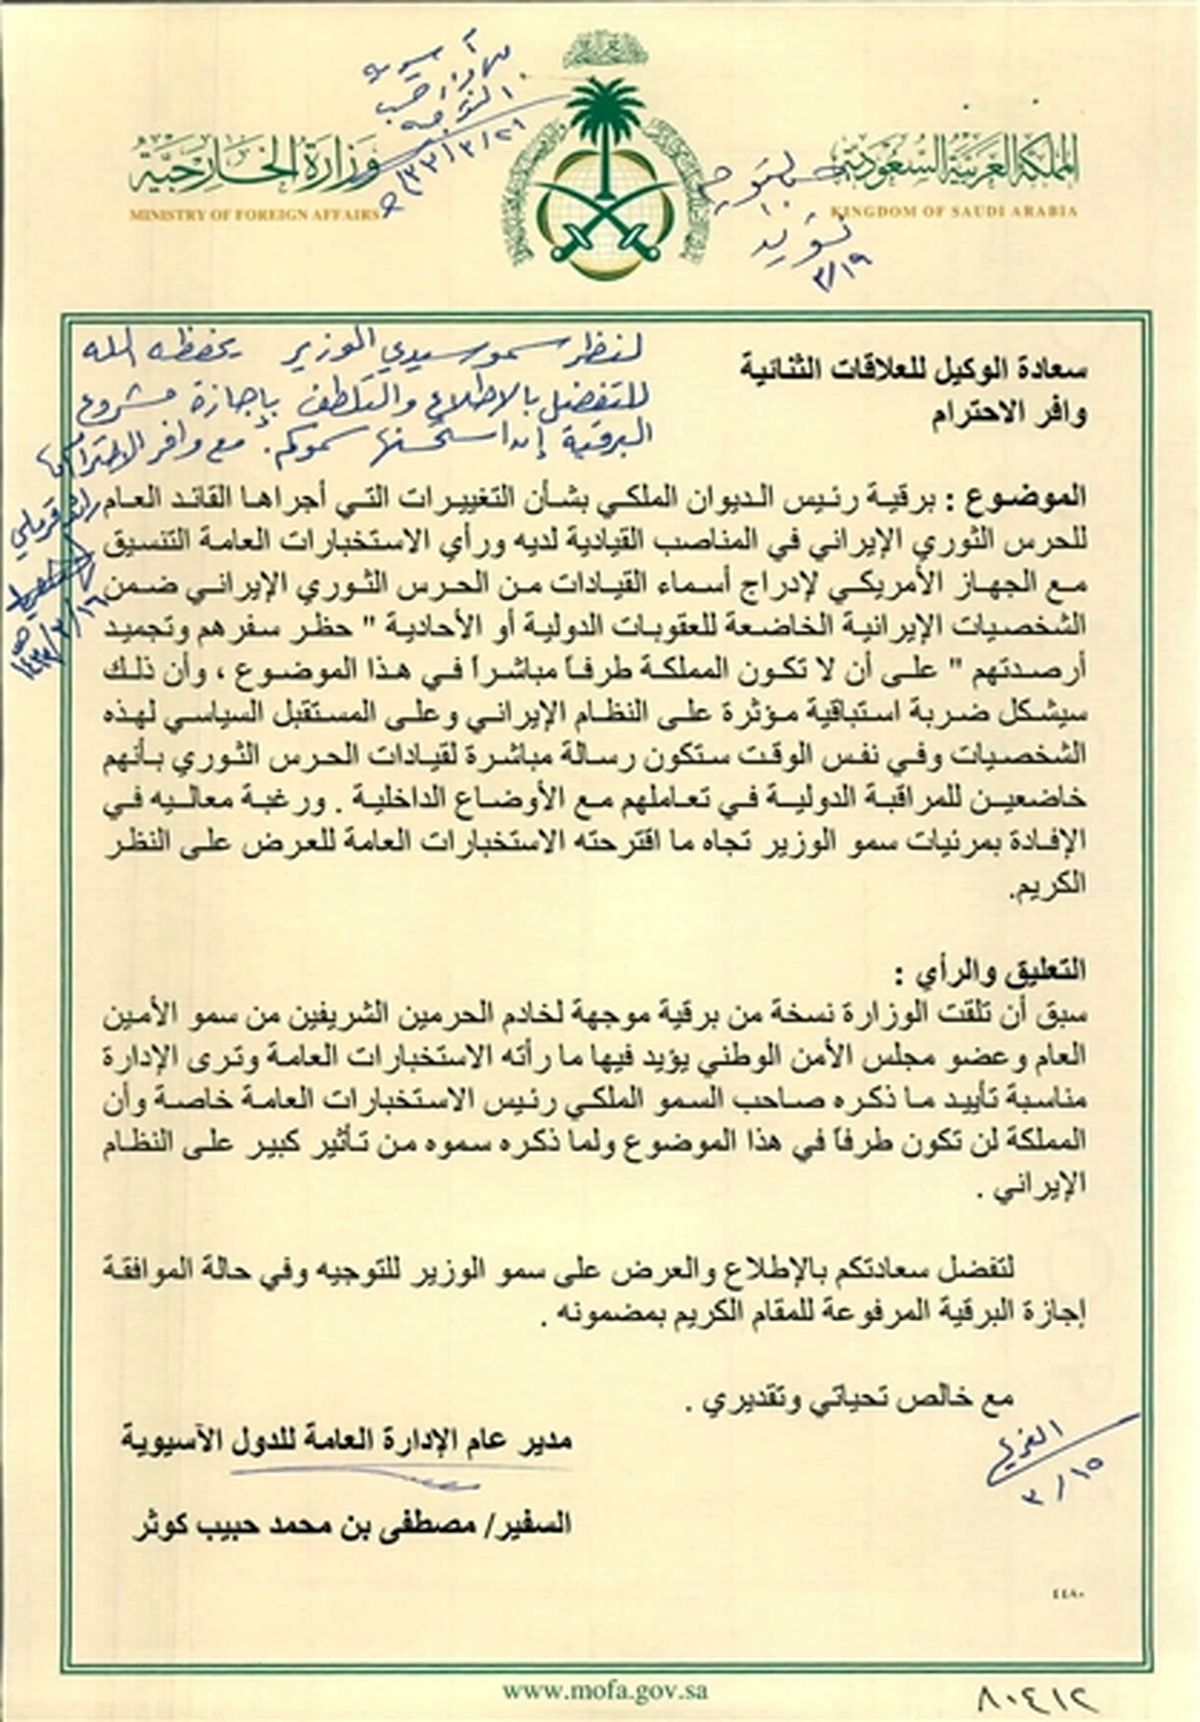 المملكة العربية السعودية
KINGDOM OF SAUDI ARABIA
وزارة الخارجية
MINISTRY OF FOREIGN AFFAIRS
٣/١٩
سعادة الوكيل للعلاقات الثنائية
وافر الاحترام
لنظر سمو سيدي الوزير يحفظه الله
للتفضل بالاطلاع والتلطف بإجازة مشروع
البرقية إذا استحسنها سموكم. مع وافر الاحترام
الموضوع : برقية رئيس الديوان الملكي بشأن التغييرات التي أجراها القائد العام
للحرس الثوري الإيراني في المناصب القيادية لديه ورأي الاستخبارات العامة التنسيق
مع الجهاز الأمريكي لإدراج أسماء القيادات من الحرس الثوري الإيراني ضمن
الشخصيات الإيرانية الخاضعة للعقوبات الدولية أو الأحادية " حظر سفرهم وتجميد
أرصدتهم " على أن لا تكون المملكة طرفاً مباشراً في هذا الموضوع ، وأن ذلك
سيشكل ضربة استباقية مؤثرة على النظام الإيراني وعلى المستقبل السياسي لهذه
الشخصيات وفي نفس الوقت ستكون رسالة مباشرة لقيادات الحرس الثوري بأنهم
خاضعين للمراقبة الدولية في تعاملهم مع الأوضاع الداخلية . ورغبة معاليه في
الإفادة بمرئيات سمو الوزير تجاه ما اقترحته الاستخبارات العامة للعرض على النظر
الكريم.
التعليق والرأي :
سبق أن تلقت الوزارة نسخة من برقية موجهة لخادم الحرمين الشريفين من سمو الأمين
العام وعضو مجلس الأمن الوطني يؤيد فيها ما رأته الاستخبارات العامة وترى الإدارة
مناسبة تأييد ما ذكره صاحب السمو الملكي رئيس الاستخبارات العامة خاصة وأن
المملكة لن تكون طرفاً في هذا الموضوع ولما ذكره سموه من تأثير كبير على النظام
الإيراني .
لتفضل سعادتكم بالإطلاع والعرض على سمو الوزير للتوجيه وفي حالة الموافقة
إجازة البرقية المرفوعة للمقام الكريم بمضمونه .
مع خالص تحياتي وتقديري .
مدير عام الإدارة العامة للدول الآسيوية
السفير/ مصطفى بن محمد حبيب كوثر
٣/١٥
٤٤٨٠
www.mofa.gov.sa
٨٠٤١٢